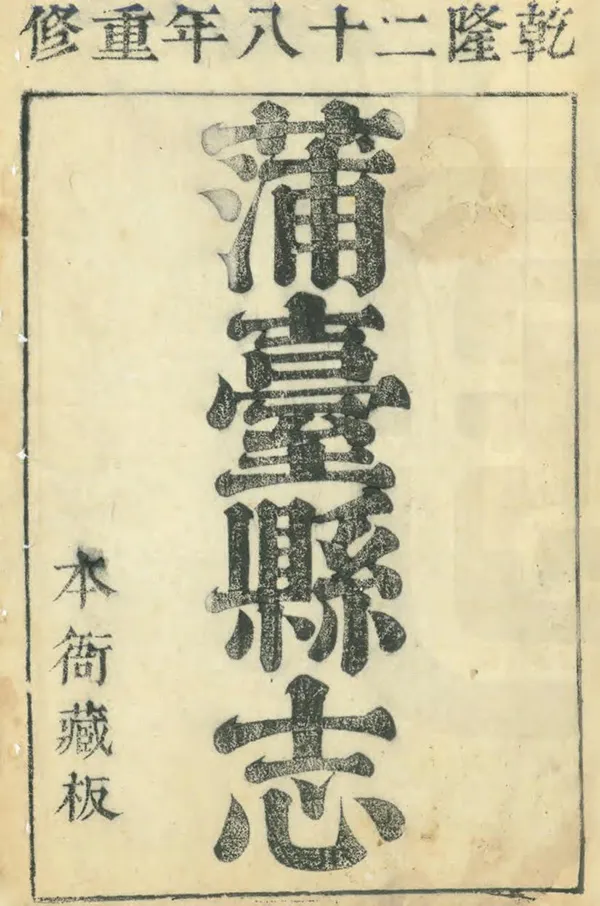 乾隆二十八年重修
蒲臺縣志
本衙藏板